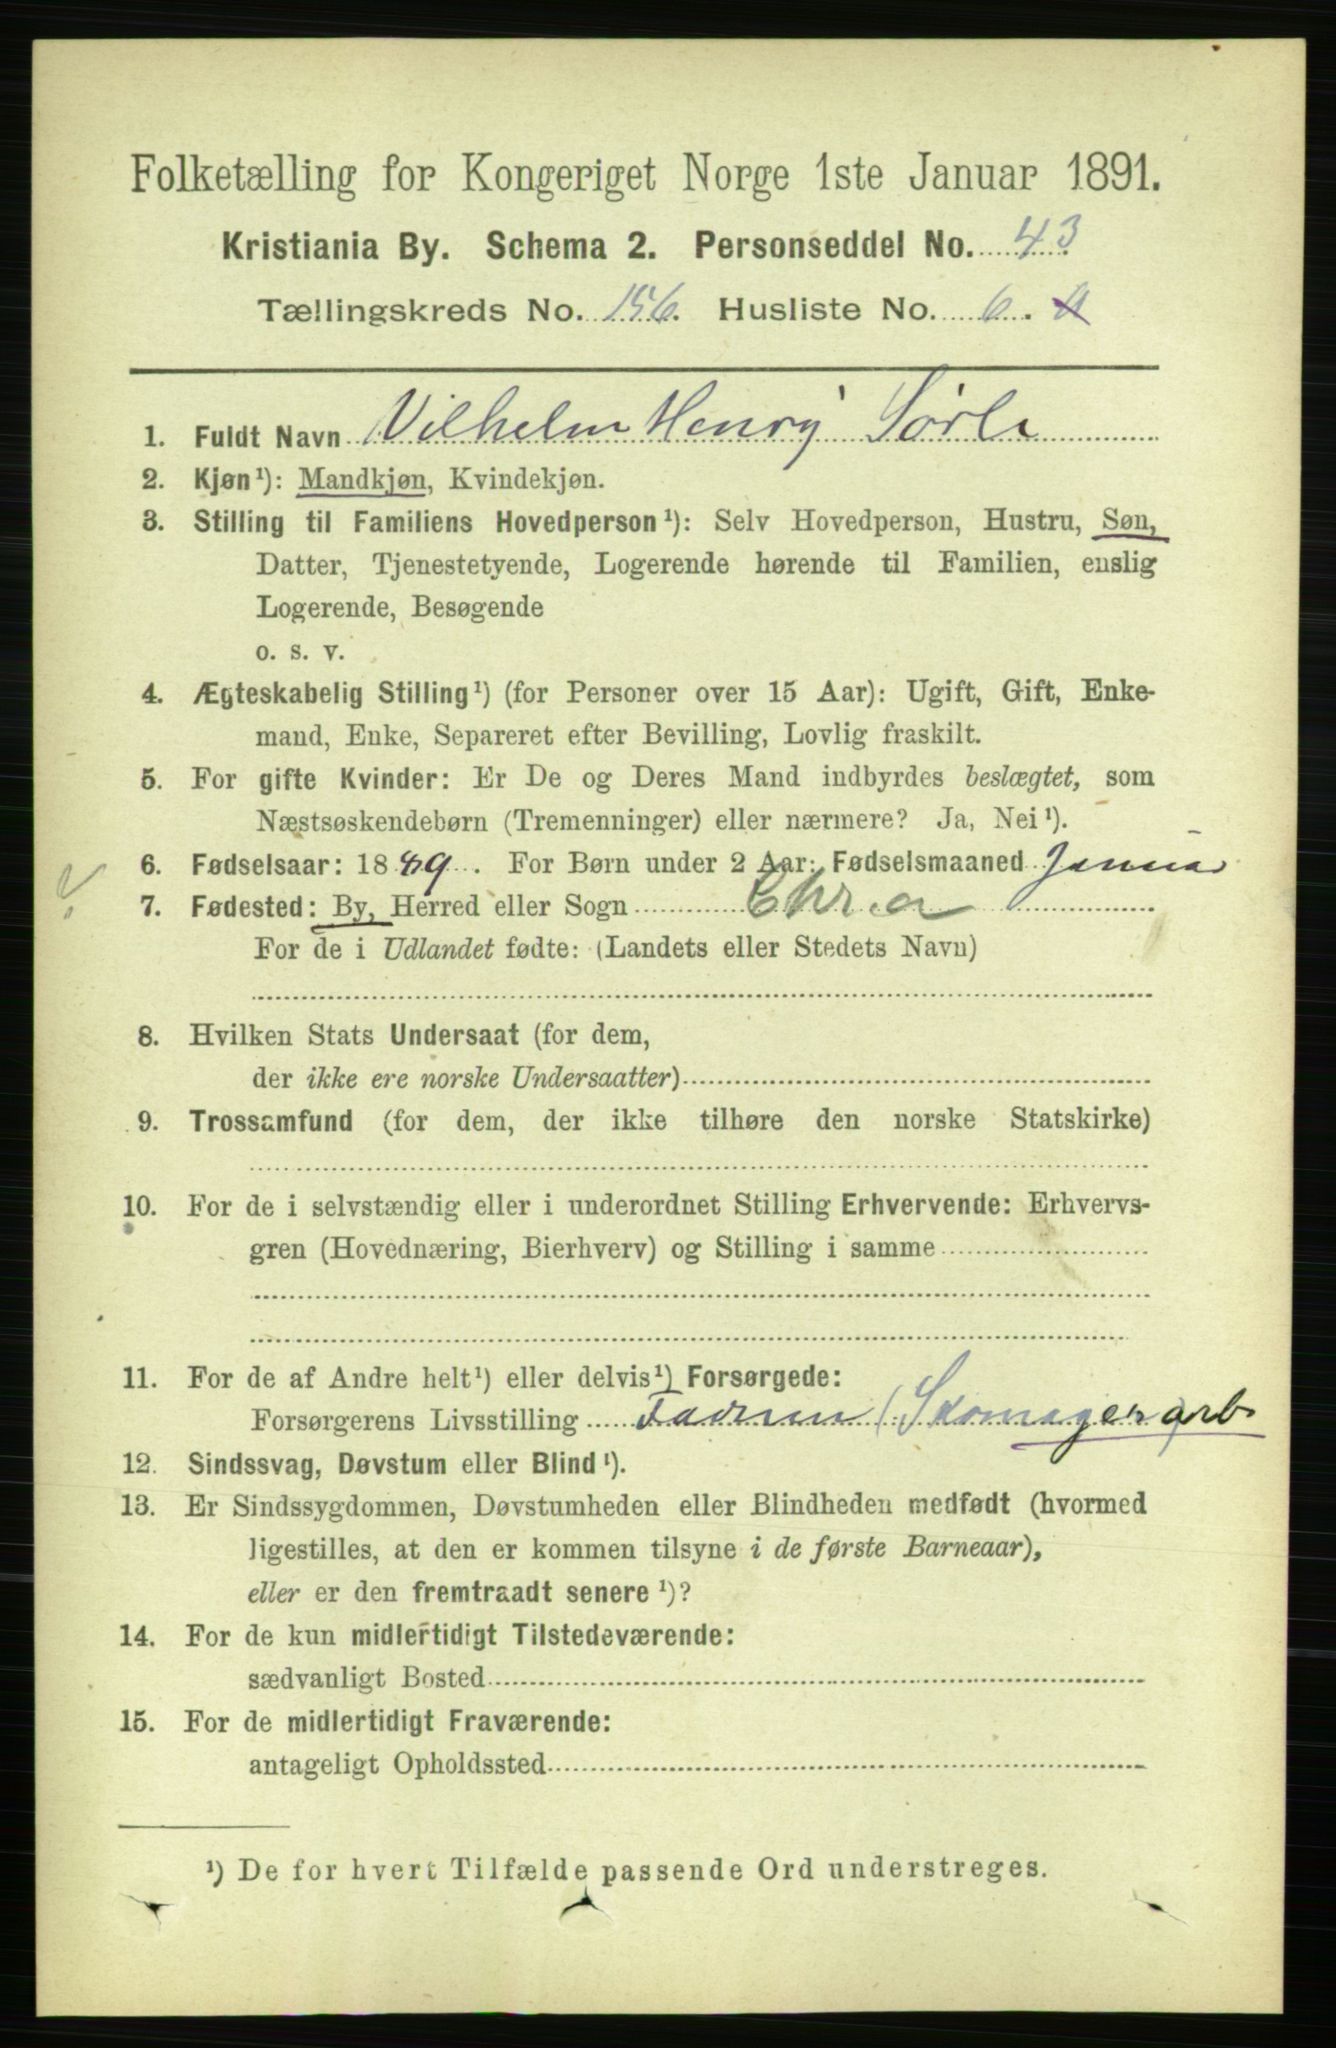 Folketælling for Kongeriget Norge 1ste Januar 1891.
Kristiania By. Schema 2. Personseddel No. 43
Tællingskreds No. 156. Husliste No. 6. a
1. Fuldt Navn Vilhelm Henry Sørli
2. Kjøn¹): Mandkjøn, Kvindekjøn.
3. Stilling til Familiens Hovedperson¹): Selv Hovedperson, Hustru, Søn,
Datter, Tjenestetyende, Logerende hørende til Familien, enslig
Logerende, Besøgende
o. s. v.
4. Ægteskabelig Stilling¹) (for Personer over 15 Aar): Ugift, Gift, Enke-
mand, Enke, Separeret efter Bevilling, Lovlig fraskilt.
5. For gifte Kvinder: Er De og Deres Mand indbyrdes beslægtet, som
Næstsøskendebørn (Tremenninger) eller nærmere? Ja, Nei¹).
6. Fødselsaar: 1889. For Børn under 2 Aar: Fødselsmaaned Januar
7. Fødested: By, Herred eller Sogn Chr.a
For de i Udlandet fødte: (Landets eller Stedets Navn)
8. Hvilken Stats Undersaat (for dem,
der ikke ere norske Undersaatter)
9. Trossamfund (for dem, der ikke tilhøre den norske Statskirke)
10. For de i selvstændig eller i underordnet Stilling Erhvervende: Erhvervs-
gren (Hovednæring, Bierhverv) og Stilling i samme
11. For de af Andre helt¹) eller delvis¹) Forsørgede:
Forsørgerens Livsstilling Faderen (Skomagerarb
12. Sindssvag, Døvstum eller Blind¹).
13. Er Sindssygdommen, Døvstumheden eller Blindheden medfødt (hvormed
ligestilles, at den er kommen tilsyne i de første Barneaar),
eller er den fremtraadt senere¹)?
14. For de kun midlertidigt Tilstedeværende:
sædvanligt Bosted
15. For de midlertidigt Fraværende:
antageligt Opholdssted
¹) De for hvert Tilfælde passende Ord understreges.